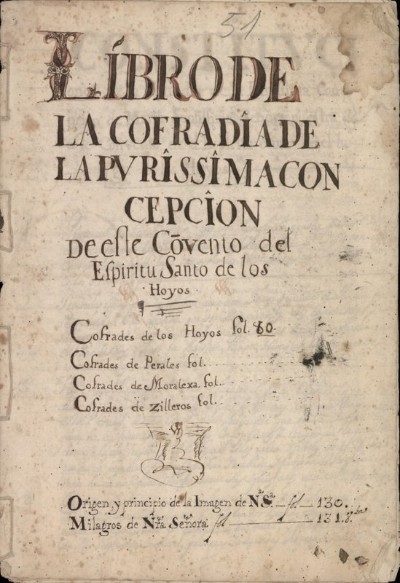 51
LÍBRO DE
LA COFRADÎA DE
LA PVRÎSSÎMA CON
CEPCÎON
De este Cõvento del
Espiritu Santo de los
Hoyos
Cofrades de los Hoyos fol. 80.
Cofrades de Perales fol.
Cofrades de Moralexa. fol.
Cofrades de Zilleros fol.
Origen y principio de la Imagen de N. S.ª fol 130.
Milagros de Ntra. Señora fol 131.